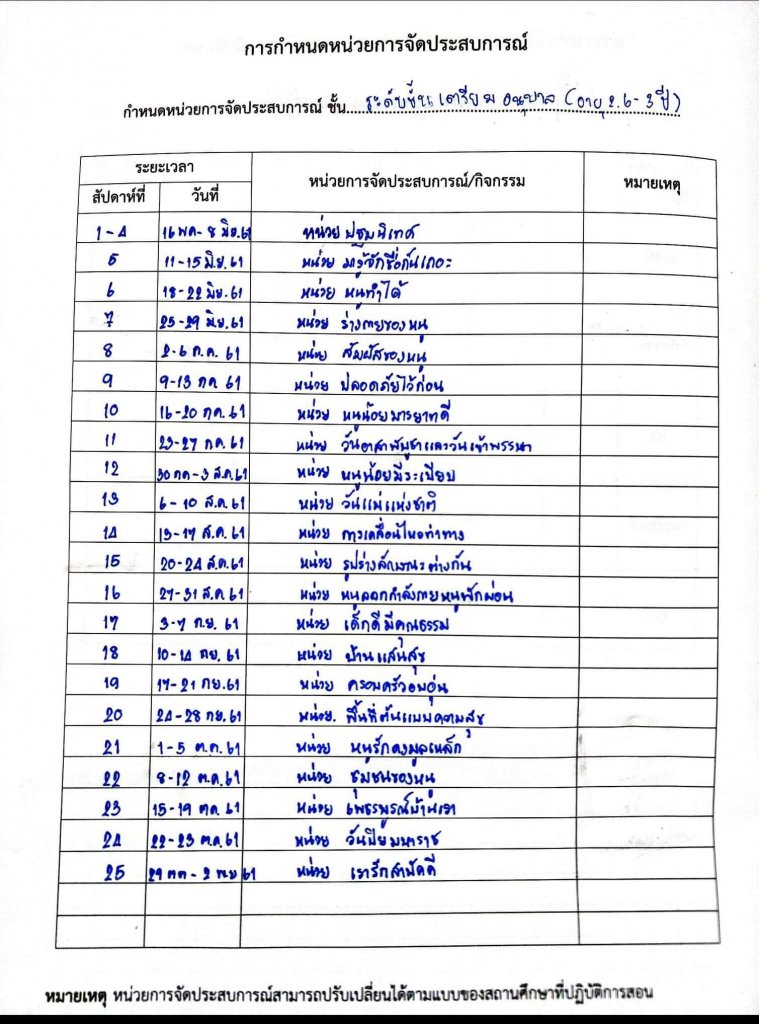 การกำหนดหน่วยการจัดประสบการณ์
กำหนดหน่วยการจัดประสบการณ์ ชั้น ระดับชั้น เตรียม อนุบาล (อายุ 2.6 - 3 ปี)
ระยะเวลา หน่วยการจัดประสบการณ์/กิจกรรม หมายเหตุ
สัปดาห์ที่ วันที่
1 - 4 16 พค - 8 มิย.61 หน่วย ปฐมนิเทศ
5 11 - 15 มิย. 61 หน่วย มารู้จักชื่อกันเถอะ
6 18 - 22 มิย. 61 หน่วย หนูทำได้
7 25 - 29 มิย. 61 หน่วย ร่างกายของหนู
8 2 - 6 ก.ค. 61 หน่วย สัมผัสของหนู
9 9 - 13 กค 61 หน่วย ปลอดภัยไว้ก่อน
10 16 - 20 กค. 61 หน่วย หนูน้อยมารยาทดี
11 23 - 27 กค. 61 หน่วย วันอาสาฬหบูชาและวันเข้าพรรษา
12 30 กค - 3 ส.ค.61 หน่วย หนูน้อยมีระเบียบ
13 6 - 10 ส.ค. 61 หน่วย วันแม่แห่งชาติ
14 13 - 17 ส.ค. 61 หน่วย การเคลื่อนไหวท่าทาง
15 20 - 24 ส.ค. 61 หน่วย รูปร่างลักษณะต่างกัน
16 27 - 31 ส.ค. 61 หน่วย หนูออกกำลังกายหนูพักผ่อน
17 3 - 7 ก.ย. 61 หน่วย เด็กดีมีคุณธรรม
18 10 - 14 กย. 61 หน่วย บ้านแสนสุข
19 17 - 21 กย.61 หน่วย ครอบครัวอบอุ่น
20 24 - 28 กย. 61 หน่วย. พื้นที่ต้นแบบความสุข
21 1 - 5 ต.ค. 61 หน่วย หนูรักดงมูลเหล็ก
22 8 - 12 ต.ค.61 หน่วย ชุมชนของหนู
23 15 - 19 ตค. 61 หน่วย เพชรบูรณ์บ้านเรา
24 22 - 23 ต.ค. 61 หน่วย วันปิยมหาราช
25 29 ตค - 2 พย 61 หน่วย เรารักสามัคคี
หมายเหตุ หน่วยการจัดประสบการณ์สามารถปรับเปลี่ยนได้ตามแบบของสถานศึกษาที่ปฏิบัติการสอน